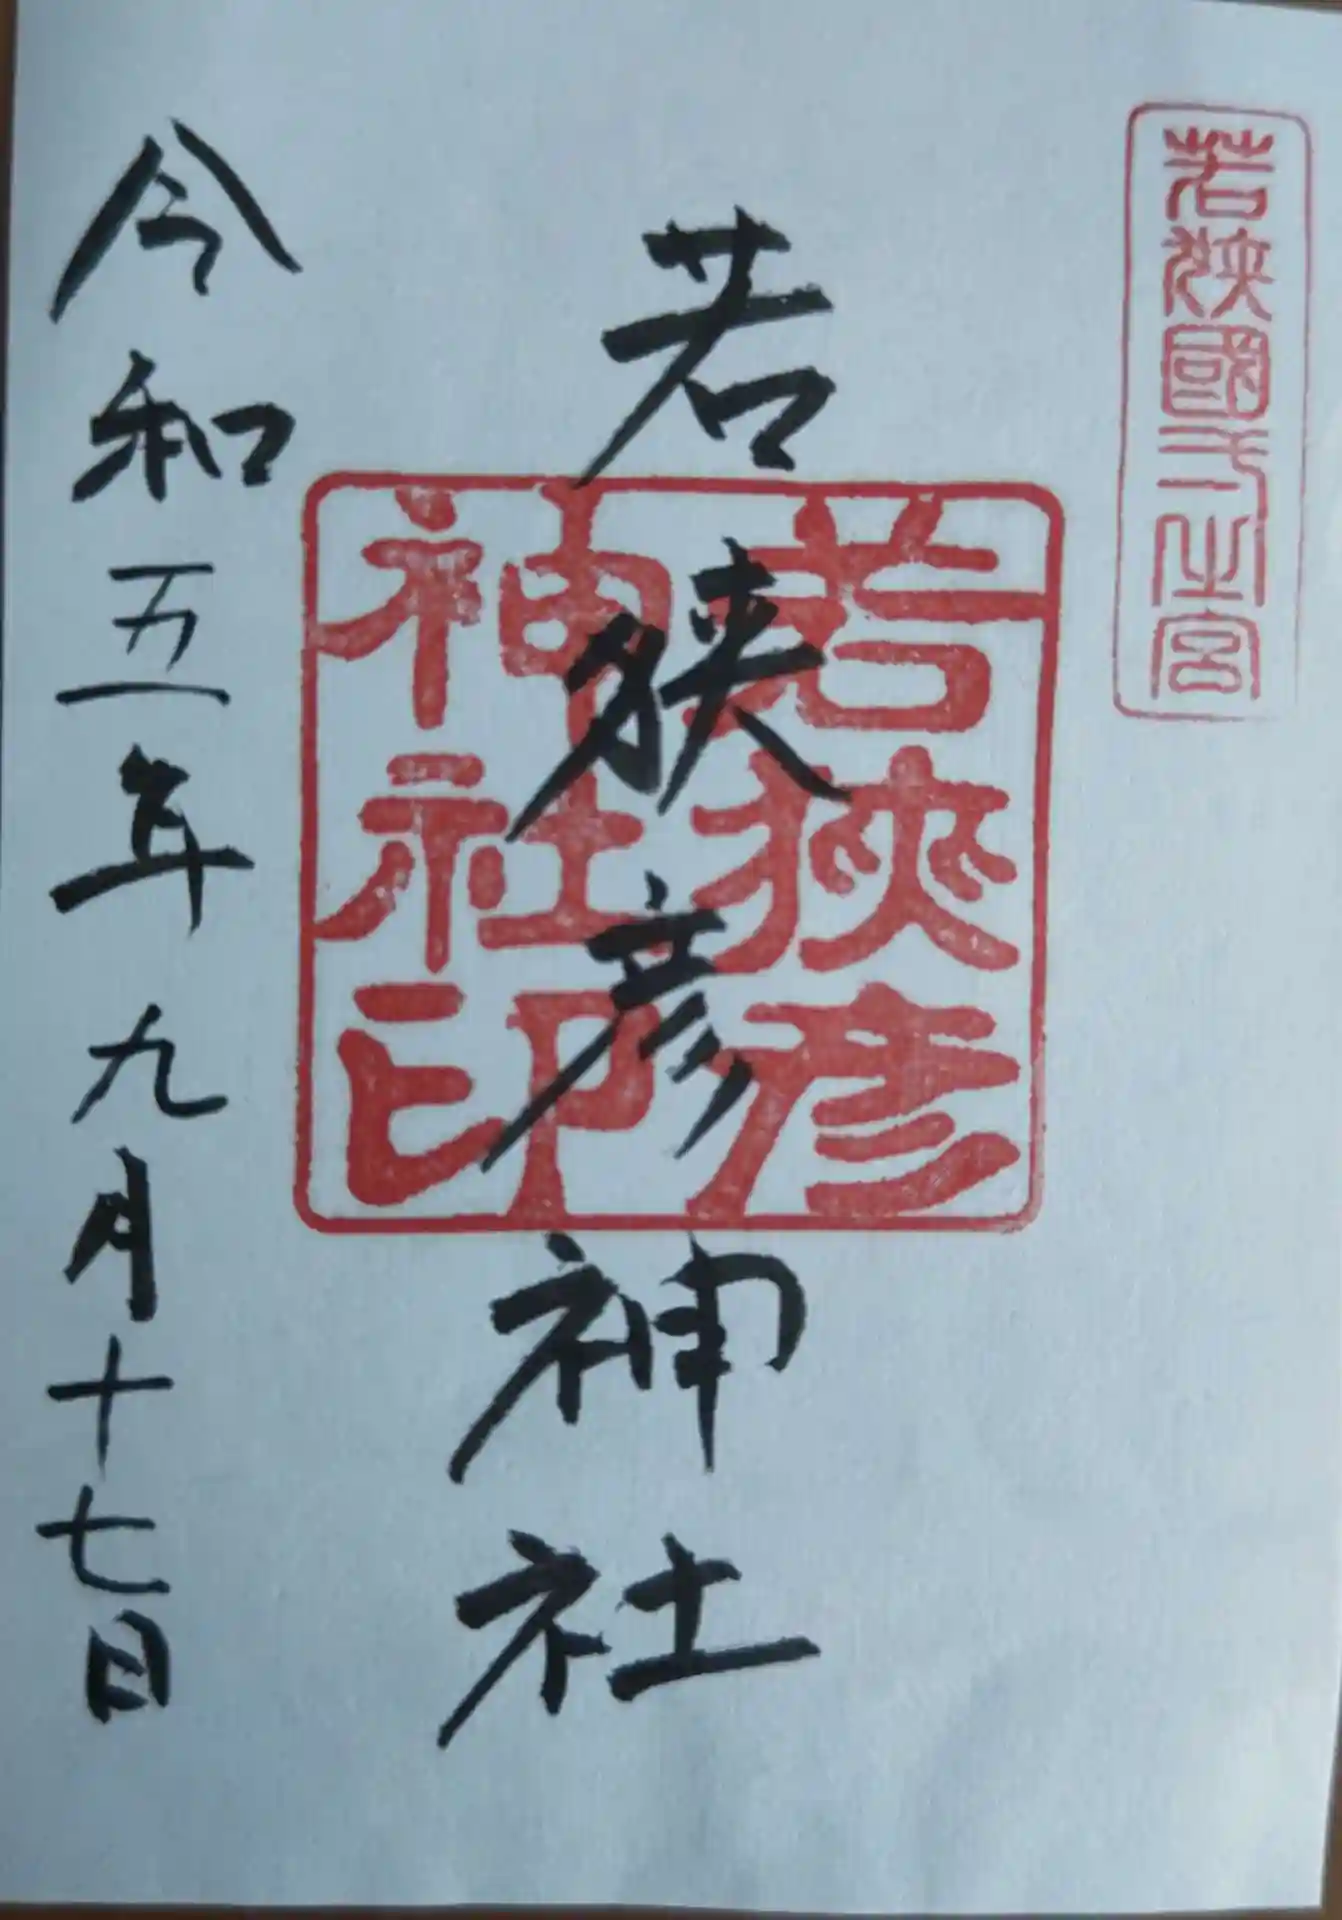 若狹國一之宮
若狭彦神社
若狹彦
神社印
令和五年九月十七日